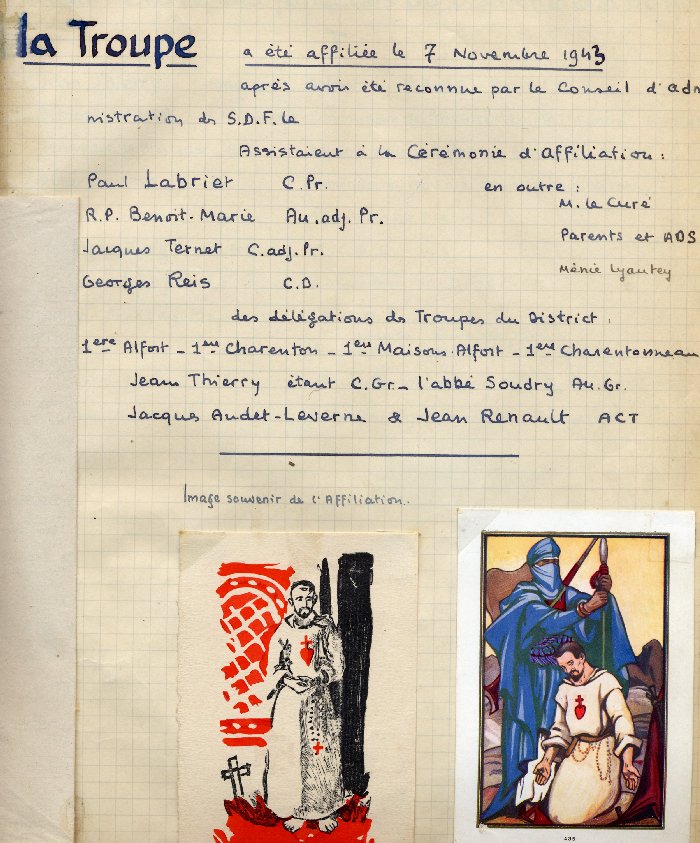 la Troupe a été affiliée le 7 Novembre 1943
après avoir été reconnue par le Conseil d'adm
nistration des S.D.F. le
Assistaient à la Cérémonie d'affiliation :
Paul Labriet C.Pr. en outre :
M. le Curé
R.P. Benoit-Marie Au.adj.Pr.
Parents et ADS
Jacques Ternet C.adj.Pr.
Ménie Lyautey
Georges Reis C.D.
des délégations des Troupes du District.
1ere Alfort - 1ere Charenton - 1ere Maisons-Alfort - 1ere Charentonneau
Jean Thierry étant C.Gr. - l'abbé Soudry Au.Gr.
Jacques Audet-Leverne & Jean Renault ACT
Image souvenir de l'Affiliation.
435